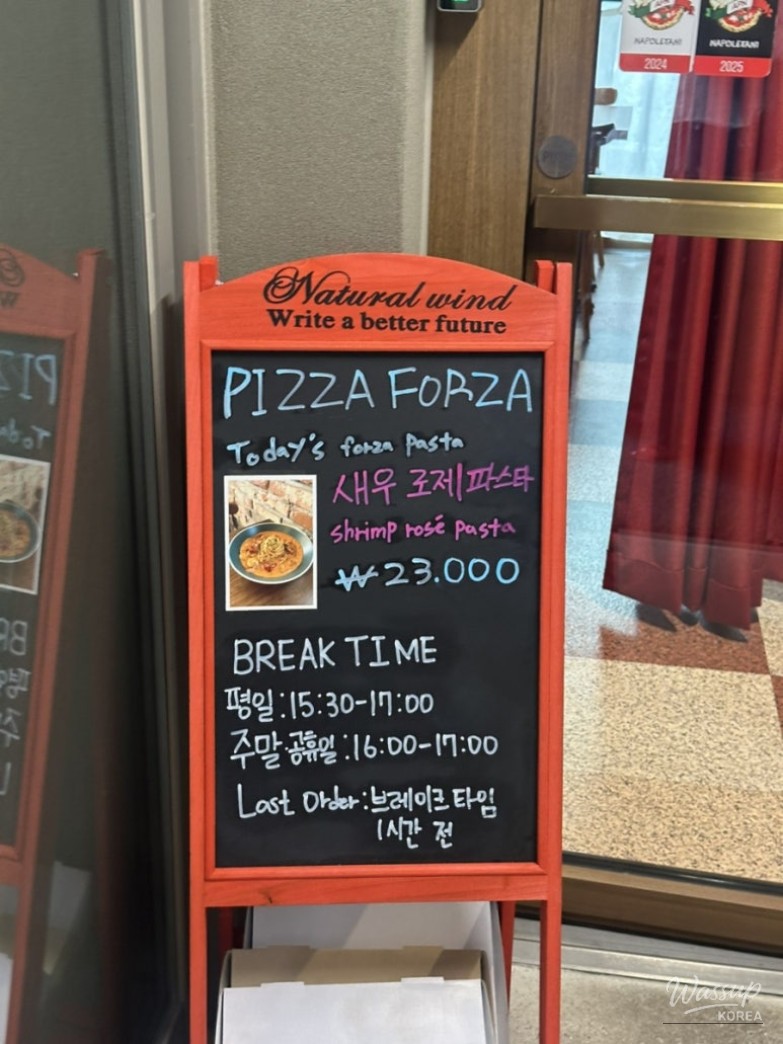 NAPOLETANI
NAPOLETANI
2024
2025
Natural wind
Write a better future
PIZZA FORZA
Today's forza pasta
새우 로제 파스타
shrimp rosé pasta
₩23.000
BREAK TIME
평일:15:30-17:00
주말·공휴일:16:00-17:00
Last Order:브레이크 타임
1시간 전
Wassup
KOREA